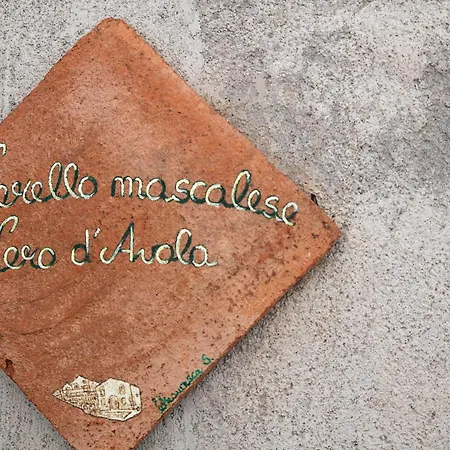 erello mascalese
ero d'Avola